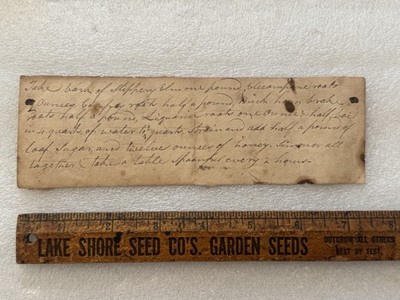 Take bark of Slippery Elm one pound, Elecampane roots
Ounces, root half a pound,
roots half a pound, Liquorice roots one Ounce & half
in 4 quarts of water to quarts, Strain and add half a pound of
loaf Sugar and twelve ounces of honey, Simmer all
together & take a table Spoonful every 2 hours
1 2 3 4 5 6 7 8 9
LAKE SHORE SEED CO'S. GARDEN SEEDS
OUTGROW ALL OTHERS
BEST BY TEST.